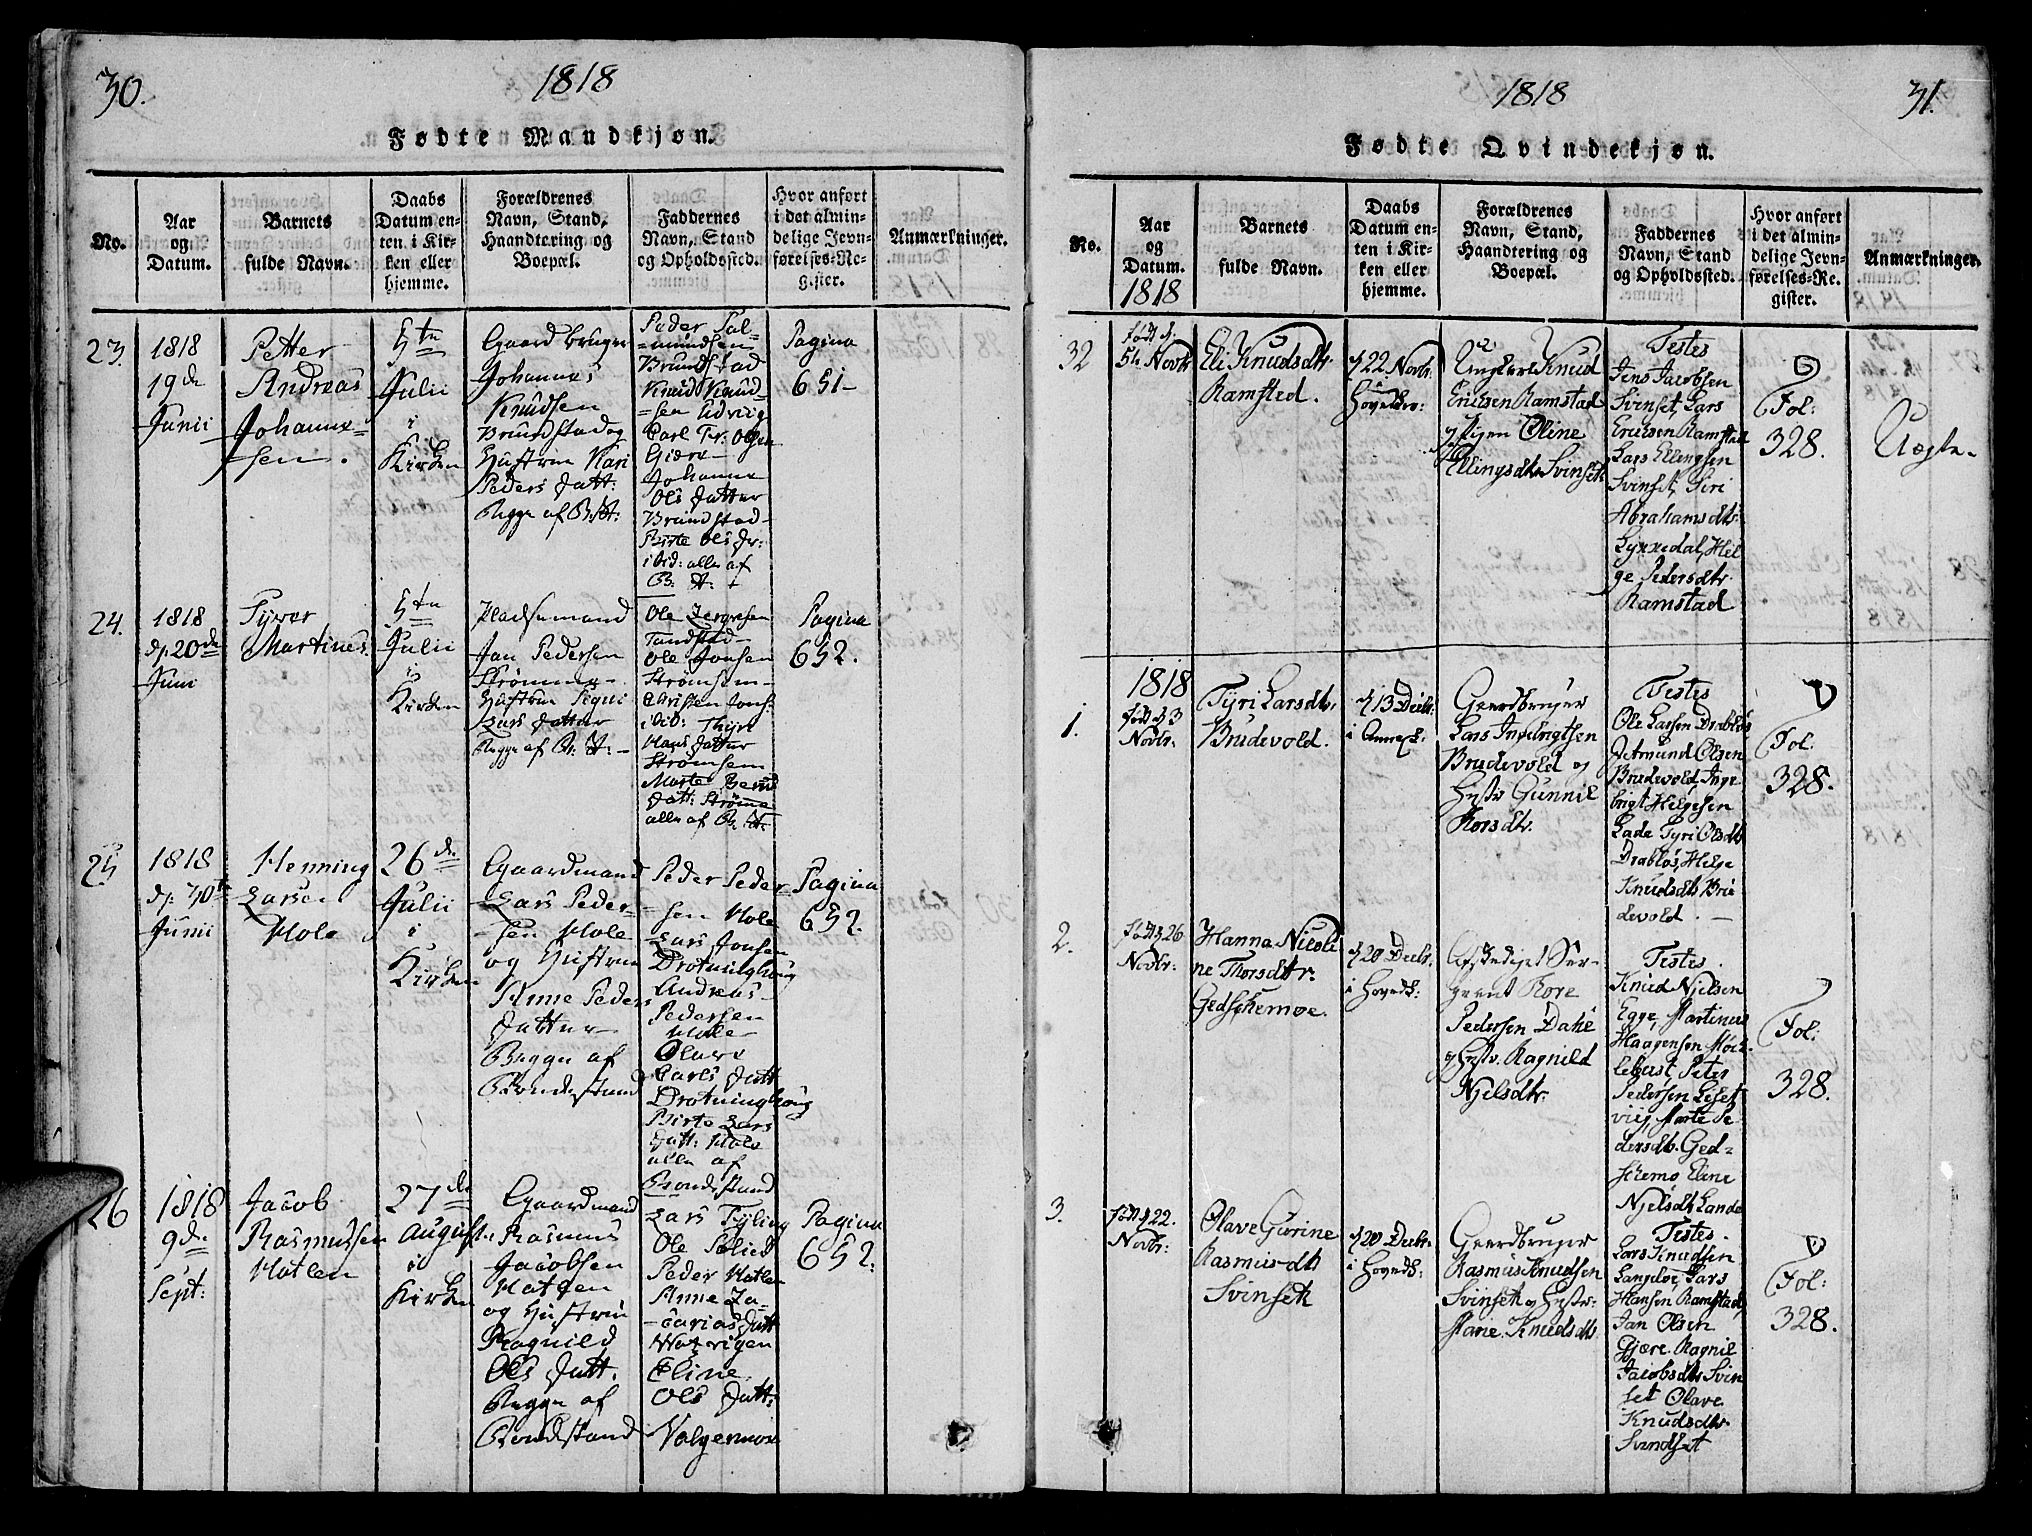 30.
1818
Fødte Mandkjøn.
No.
Aar
og
Datum.
Barnets
fulde Navn.
Daabs
Datum en-
ten i Kir-
ken eller
hjemme.
Forældrenes
Navn, Stand,
Haandtering og
Boepæl.
Faddernes
Navn, Stand
og Opholdssted.
Hvor anført
i det almin-
delige Jevn-
førelses-Re-
gister.
Anmærkninger.
23.
1818
19de
Junii
Petter
Andreas
Johanne-
-sen.
5te
Julii
i
Kirken
Gaard bruger
Johannes
Knudsen
Brundstad og
Hustrue Kari
Peders Datt:
Begge af B:St:
Peder Sal-
-mundsen
Brundstad
Knud Knud-
-sen Edviig
Carl Fr: Olsen
Giære
Johanne
Ols Datter
Brundstad
Birte Ols Dr:
ibid: alle af
B: St:
Pagina
651-
24.
1818
d: 20de
Juni
Syver
Martinus
5te
Julii
i
Kirken
Pladsemand
Jan Pedersen
Strømme
Hustrue Sigui
Lars Datter
Begge af B: St:
Ole
Tandstad
Ole Jonsen
Strømsem
Christen Jons:
ibid: Thyri
Hans Datter
Strømsem
Marte Bernd
Datt: Strømme
alle af B: St:
Pagina
652.
25
1818
d: 30te
Junii
Henning
Larsen
Hole
26de
Julii
i
Kirken
Gaardmand
Lars Peder-
-sen Hole
og Hustrue
Anne Peders
Datter
Begge af
Bondestand
Peder Peder-
-sen Hole
Lars Jonsen
Drotninghoug
Andreas
Pedersen
Hole
Olave
Carls Datt
Drotninghoug
Birte Lars
Datt: Hole
alle af
Bondestand
Pagina
652.
26
1818
9de
Sept:
Jacob
Rasmussen
Hatlen
27de
August.
i
Kirken
Gaardmand
Rasmus
Jacobsen
Hatlen
og Hustrue
Ragnild
Ols Datt:
Begge af
Bondestand
Lars Tyling
Ole Solied
Peder Hatlen
Anne Za-
-carias Datt
Eline
Ols Datt:
Valgermoe
Pagina
652.
1818
31.
Fødte Qvindekjøn.
No.
Aar
og
Datum.
1818
Barnets
fulde Navn.
Daabs
Datum en-
ten i Kir-
ken eller
hjemme.
Forældrenes
Navn, Stand,
Haandtering og
Boepæl.
Faddernes
Navn, Stand
og Opholdssted.
Hvor anført
i det almin-
delige Jevn-
førelses-Re-
gister.
Anmærkninger.
32
født d:
5t. Novbr
Eli Knudsdtr.
Ramsted.
d 22 Novbr:
Hovedk:
Ungkarl Knud
Ericksen Ramstad
og Pigen Oline
Ellingsdtr Svinset
Testes
Jens Jacobsen
Svinset, Lars
Ericksen Ramstad
Lars Ellingsen
Svinset, Siri
Abrahamsdtr:
Lyxedal, Hel
ge Pedersdtr.
Ramstad
Fol:
328.
Uægte.
1.
1818
født d 3
Novbr:
Tyri Larsdtr.
Brudevold.
d 13 Decbr:
i Annexk:
Gaardbruger
Lars Ingebrigtsen
Brudevold og
Hustr Gunnil
Korsdtr.
Testes
Ole Larsen Drabløs
Jetmund Olsen
Brudevold, Inge
brigt Helgesen
Lade Tyri Olsdtr
Drabløs, Helge
Knudsdtr Bru
devold.
Fol:
328.
2.
født d 26
Novbr:
Hanna Nicoli
ne Thorsdtr.
Gedschemoe.
d 20 Decbr.
i Hovedk:
Afskediget Ser-
geant Tore
Pedersen Dahe
og Hustr. Ragnild
Njelsdtr.
Testes.
Knud Njelsen
Egge, Martinus
Haagensen Møck
lebust, Peter
Pedersen Liset
viig, Marte Pe
dersdtr. Ged-
schemo Eline
Njelsdtr Lande
Fol:
328.
3.
født d 22.
Novbr:
Olave Gurine
Rasmusdtr
Svinset
d 20 Decbr.
i Hovedk:
Gaardbruger
Rasmus Knudsen
Svinset og Hustr:
Marie Knudsdtr.
Testes.
Lars Knudsen
Langeløe, Lars
Hansen Ramstad,
Jan Olsen
Gjære. Ragnil
Jacobsdtr Svin
set Olave
Knudsdtr.
Svindset
Fol:
328.